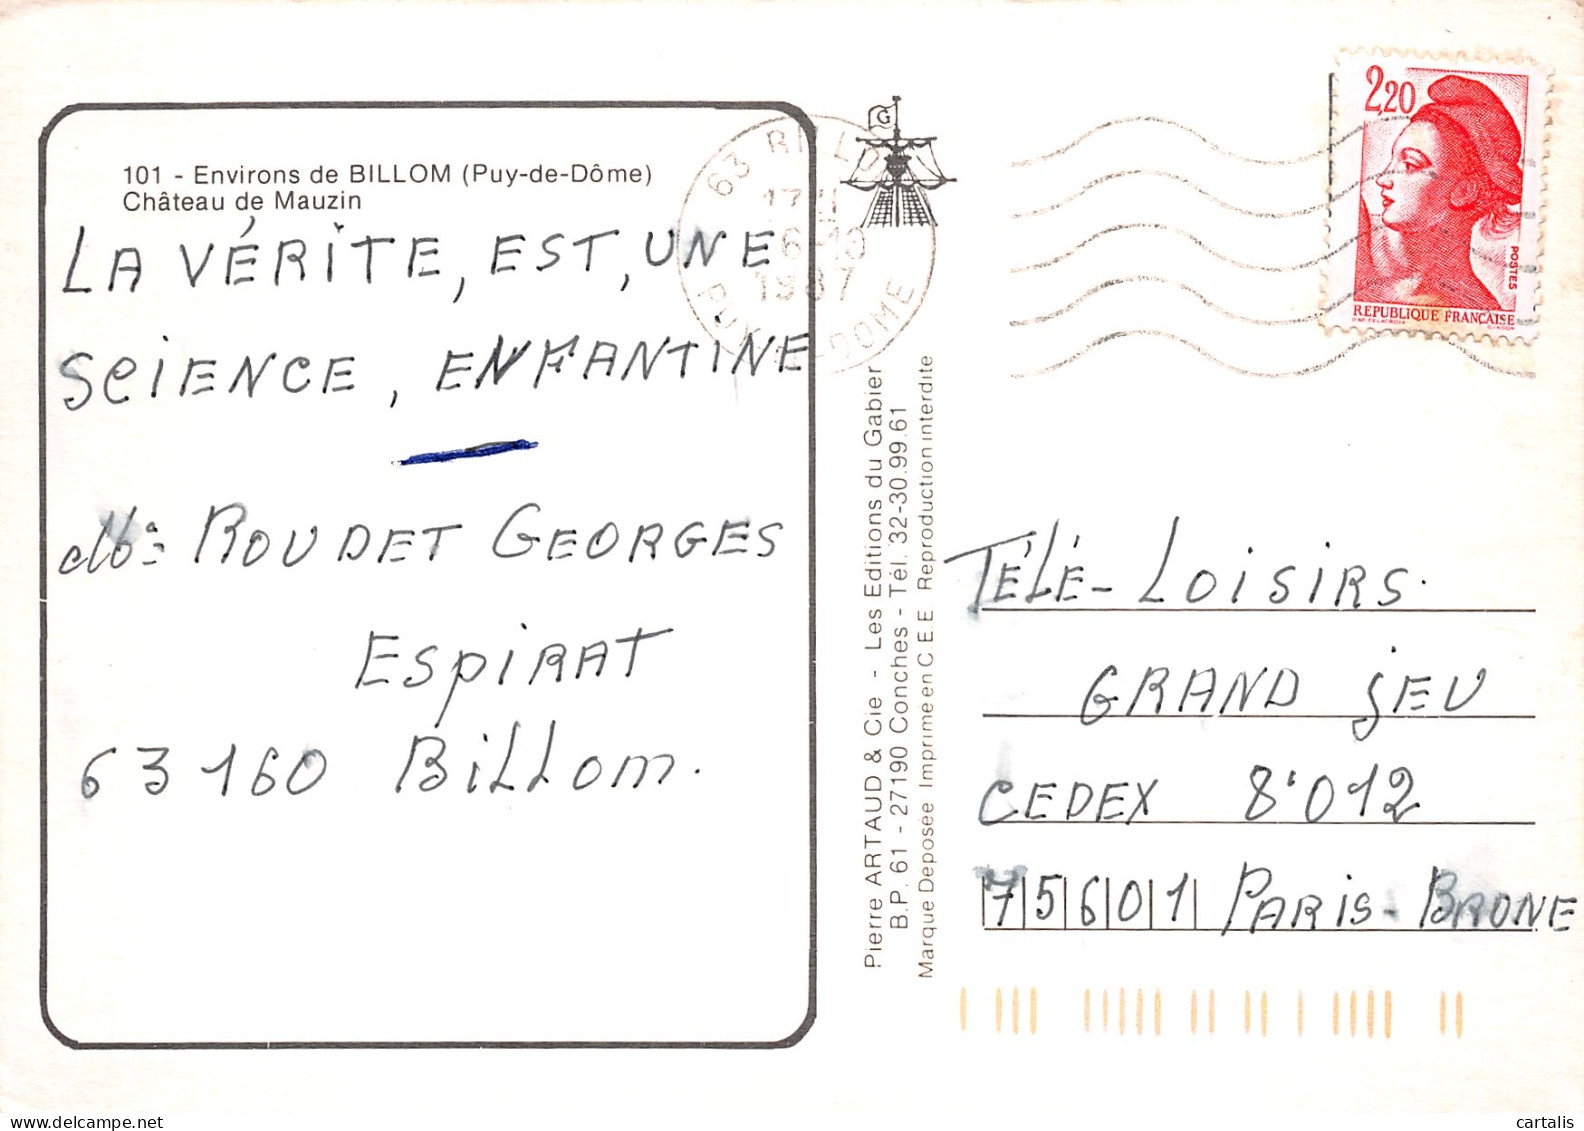 101 - Environs de BILLOM (Puy-de-Dôme)
Château de Mauzin
LA VÉRITE, EST, UNE
SCIENCE, ENFANTINE
Mº ROUDET GEORGES
ESPIRAT
63160 BILLOM.
G
63 BILLO
17 H
6-10
1987
PUY-DE-DOME
2,20
POSTES
REPUBLIQUE FRANÇAISE
Pierre ARTAUD & Cie - Les Editions du Gabier
B.P. 61 - 27190 Conches - Tél. 32-30.99.61
Marque Deposée Imprime en C.E.E Reproduction interdite
TÉLÉ-LOISIRS.
GRAND JEU
CEDEX 8'012
75601 PARIS-BRONE
cartalis